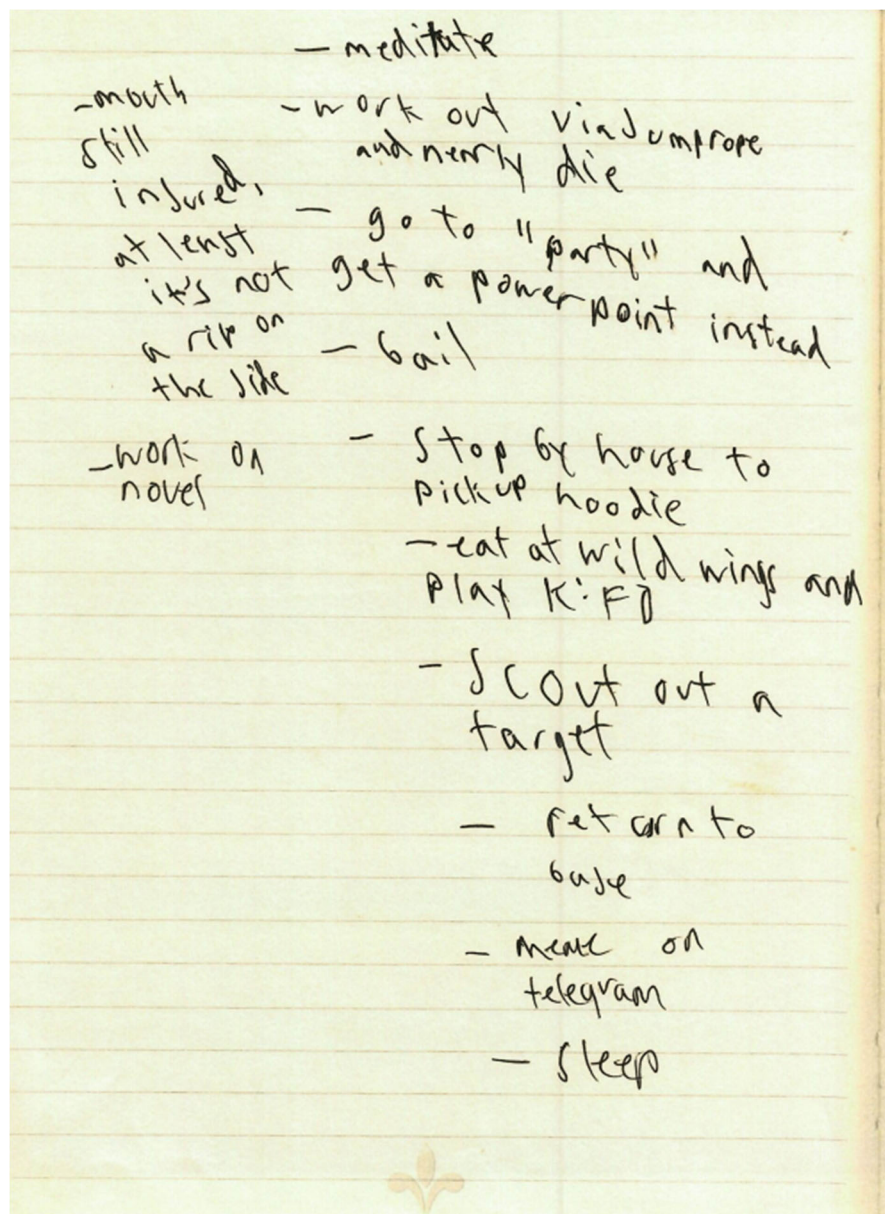 - meditate
- mouth
still
injured,
at least
it's not
a rip on
the side
- work on
novel
- work out via Jumprope
and nearly die
- go to "party" and
get a powerpoint instead
- bail
- stop by house to
pickup hoodie
- eat at wild wings and
play K:FD
- scout out a
target
- return to
base
- meme on
telegram
- sleep